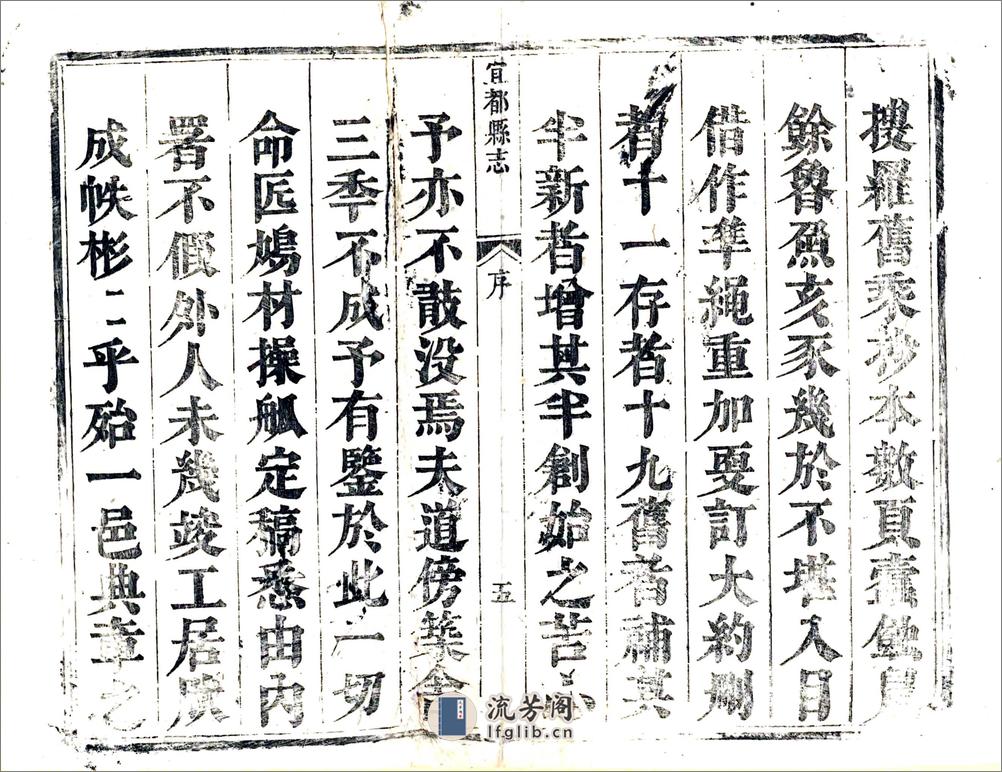 搜羅舊乘抄本數頁蠹蝕
餘魯魚亥豕幾於不堪入目
借作準繩重加更訂大約刪
者十一存者十九舊者補其
半新者增其半創始之苦
宜都縣志
序
五
予亦不敢没焉夫道傍築舍
三季不成予有鑒於此一切
命匠鳩材操觚定稿悉由內
署不假外人未幾竣工居然
成帙彬彬乎殆一邑典章之
流芳阁
lfglib.cn